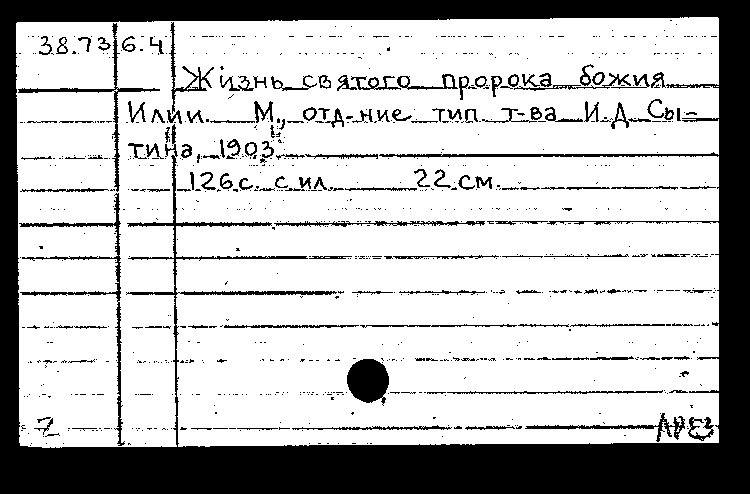 38.73 6.4
Жизнь святого пророка божия
Илии. М., отд-ние тип. т-ва И.Д. Сы-
тина, 1903.
126 с. с ил. 22 см.